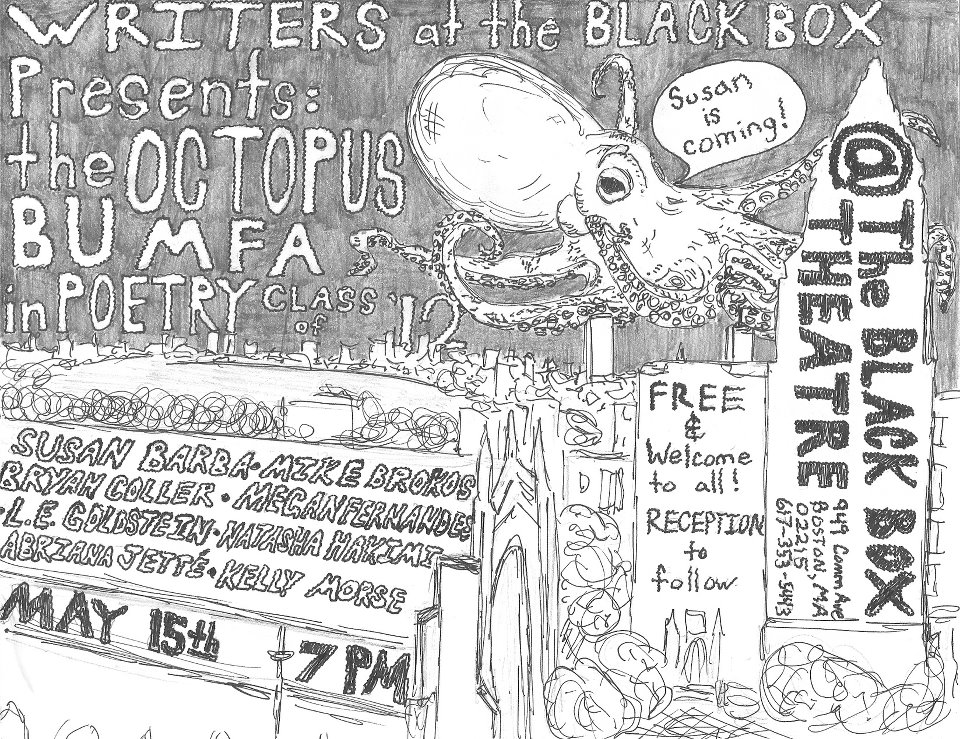 WRITERS at the BLACK BOX
Presents:
the OCTOPUS
BUMFA
in POETRY CLASS of '12
Susan
is
coming!
@ The BLACK BOX
THEATRE
949 Comm Ave
BOSTON, MA
02215
617-353-5443
FREE
&
Welcome
to all!
RECEPTION
to
follow
SUSAN BARBA • MIKE BROKOS
BRYAN COLLER • MEGAN FERNANDES
• L.E. GOLDSTEIN • NATASHA HAKIMI
ABRIANA JETTÉ • KELLY MORSE
MAY 15th 7 PM